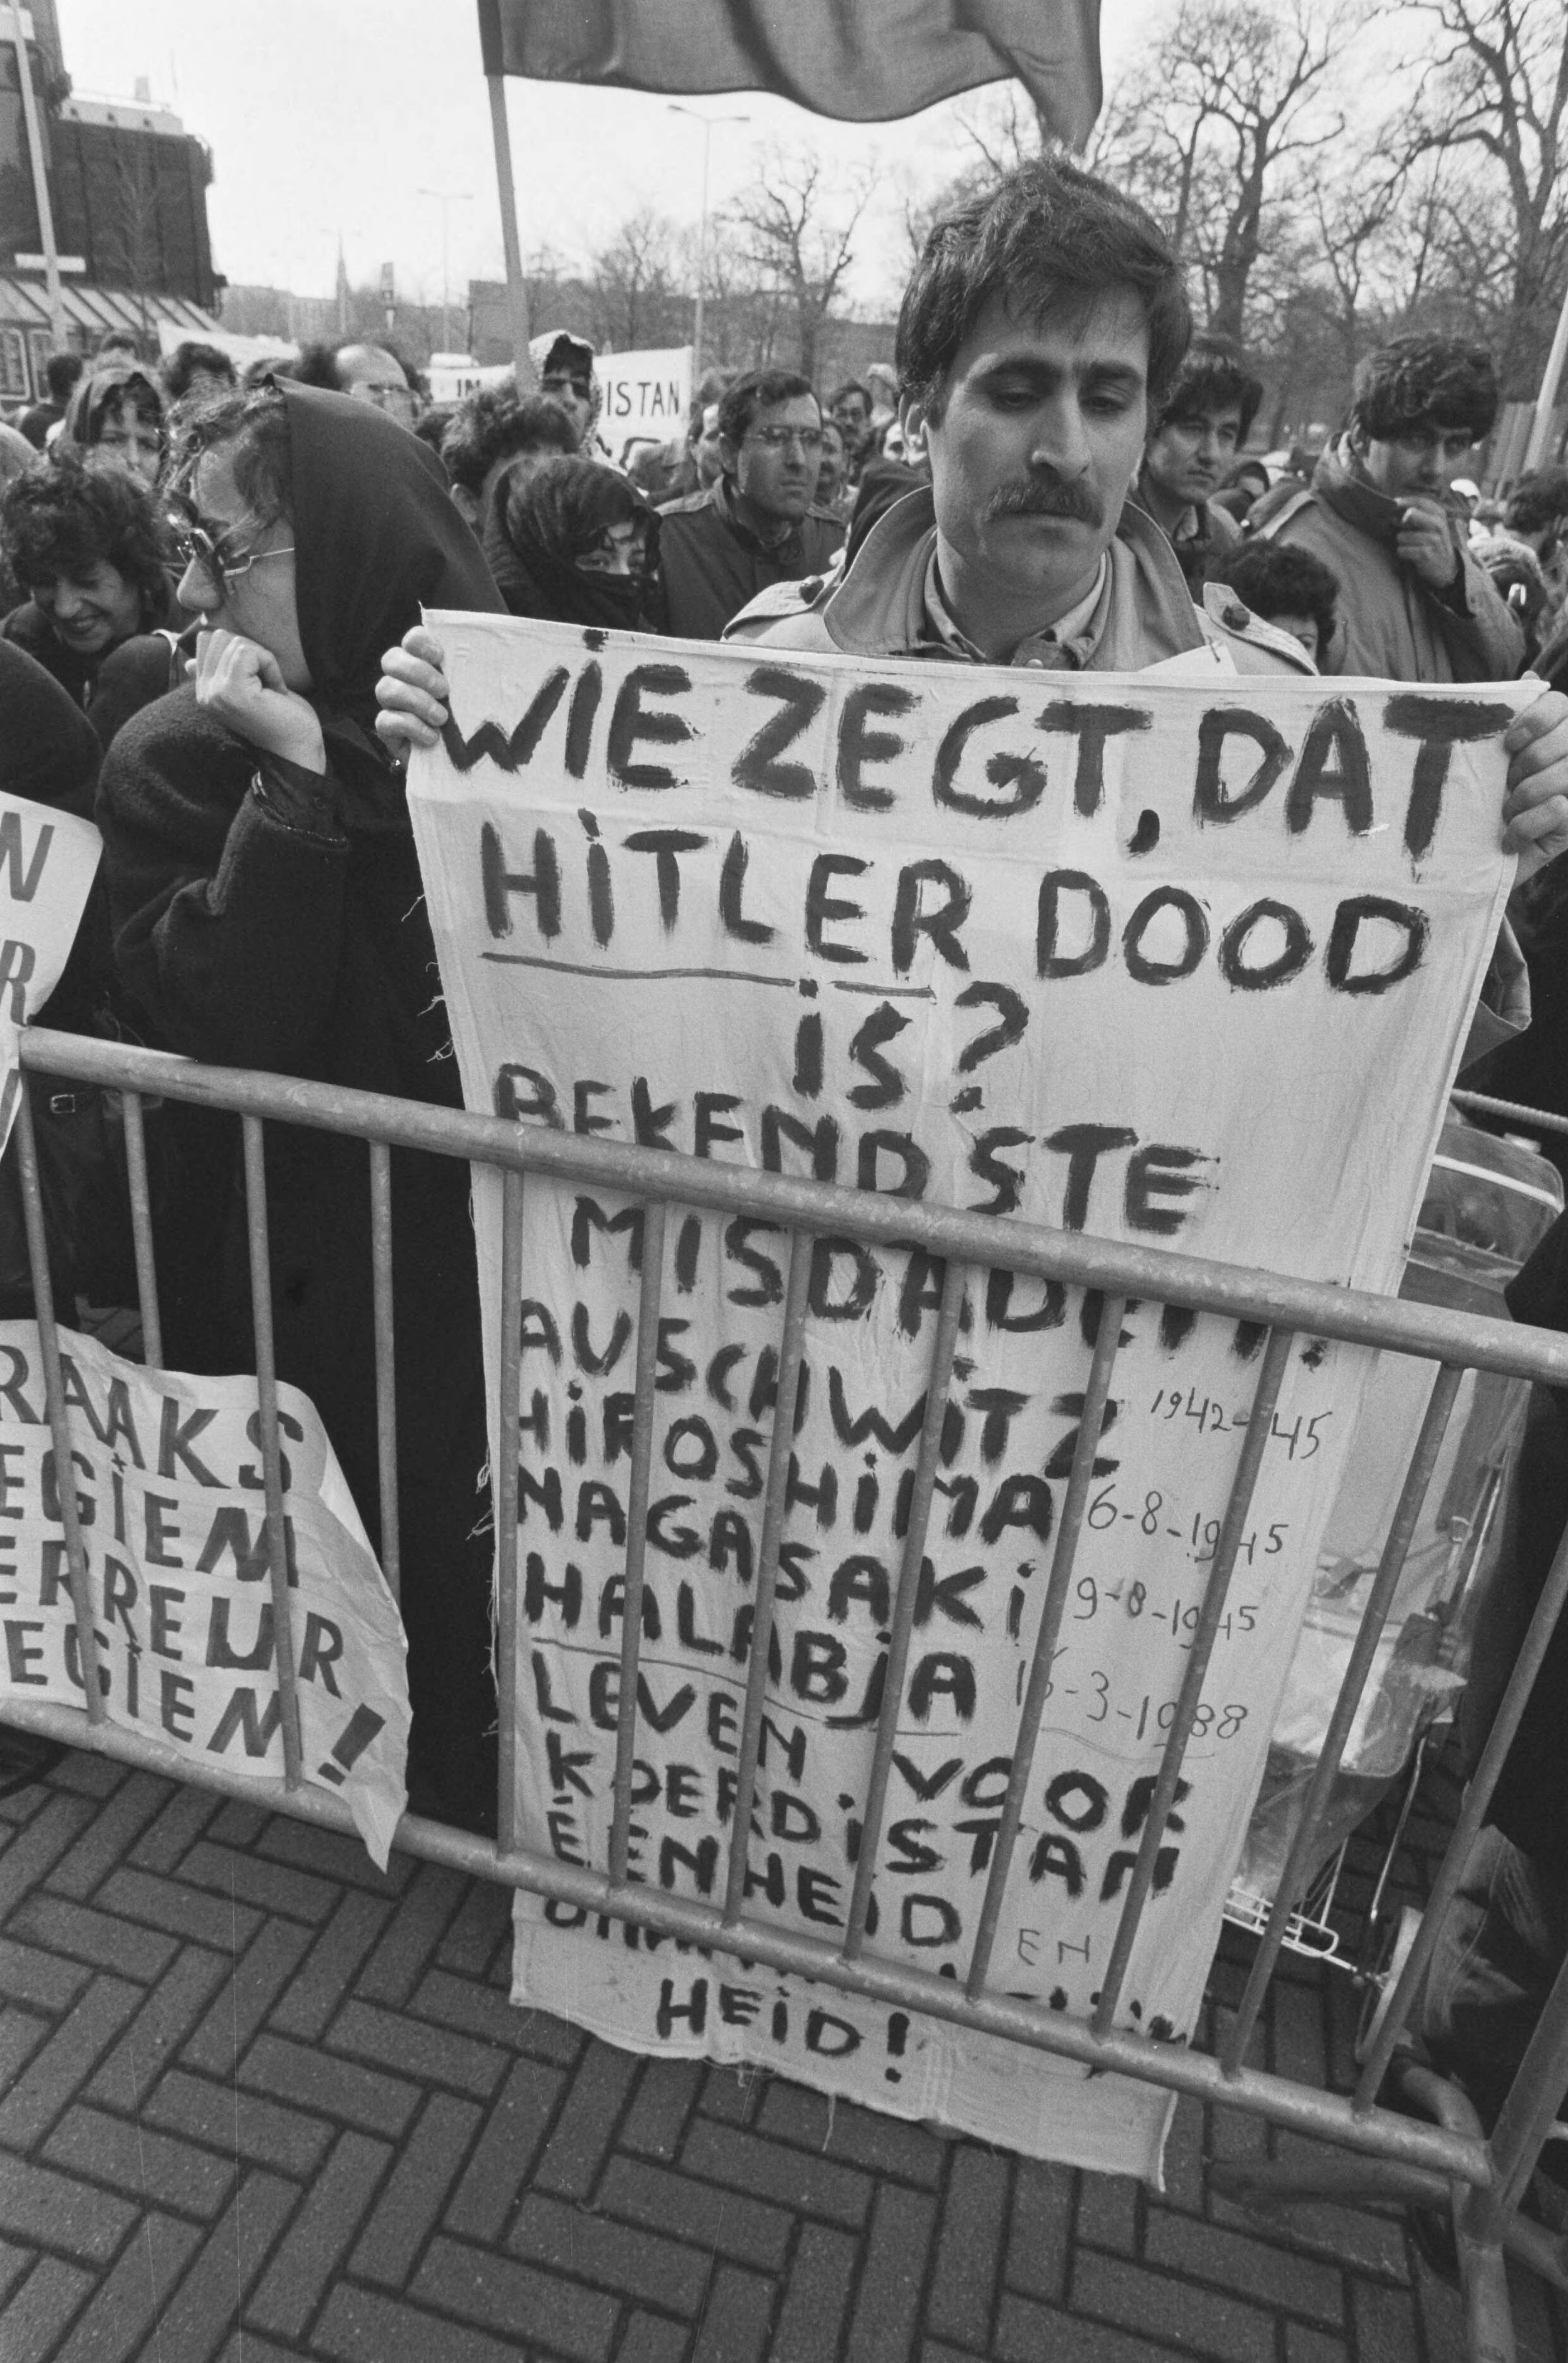 IM
ISTAN
WIE ZEGT, DAT
HiTLER DOOD
iS?
BEKENDSTE
MISDADEN!
AUSCHWiTZ 1942-45
HiROSHiMA 6-8-1945
NAGASAKi 9-8-1945
HALABjA 16-3-1988
LEVEN VOOR
KOERDiSTAN
EENHEiD EN
HEiD!
N
R
RAAKS
EGiEM
ERREUR
EGiEN!